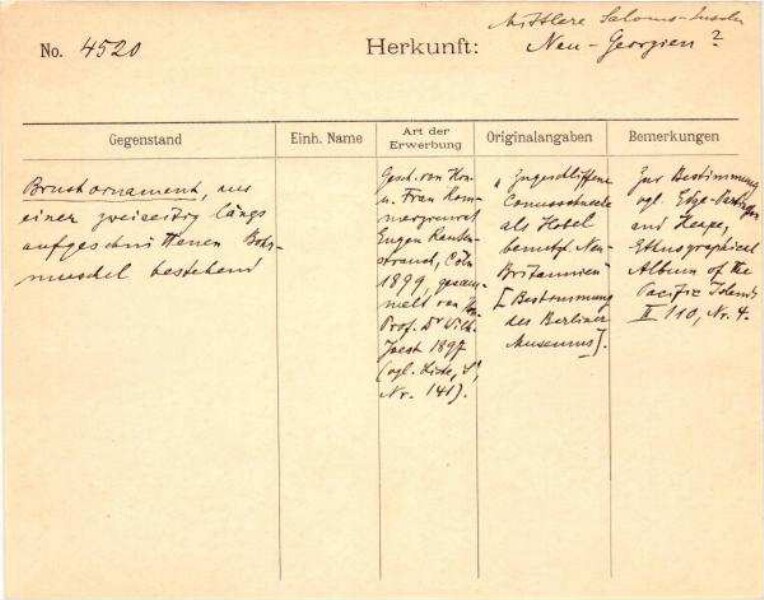 Mittlere Salomo-Inseln
No. 4520
Herkunft:
Neu-Georgien?
Gegenstand
Einh. Name
Art der
Erwerbung
Originalangaben
Bemerkungen
Brustornament, aus
einer zweiseitig längs
aufgeschnittenen Bohr-
muschel bestehend
Gesch. von Hrn
u. Frau Kom-
merzienrat
Eugen Rauten-
strauch, Cöln
1899, gesam-
melt von Hrn
Prof. Dr Wilh.
Joest 1897
(vgl. Liste,
Nr. 141).
"Zugeschliffene
Conusschnecke
als Hobel
benutzt. Neu-
Britannien"
[Bestimmung
des Berliner
Museums].
Zur Bestimmung
vgl. Edge-Partington
and Heape,
Ethnographical
Album of the
Pacific Islands
II 110, Nr. 4.